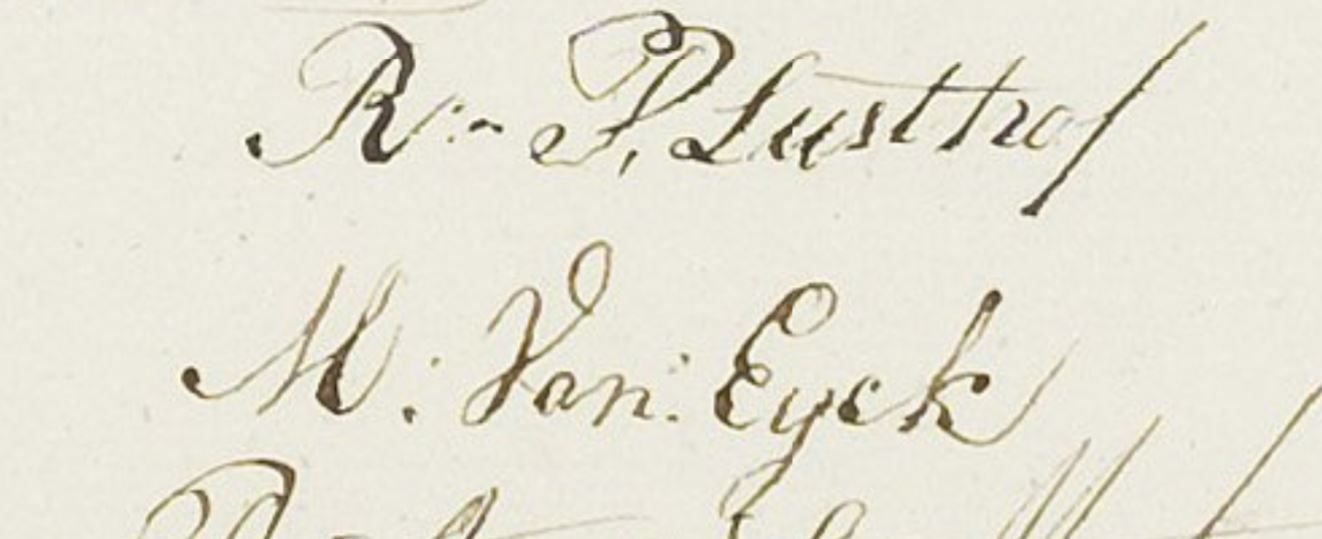 R:- P. Lusthof
M: Van: Eyck